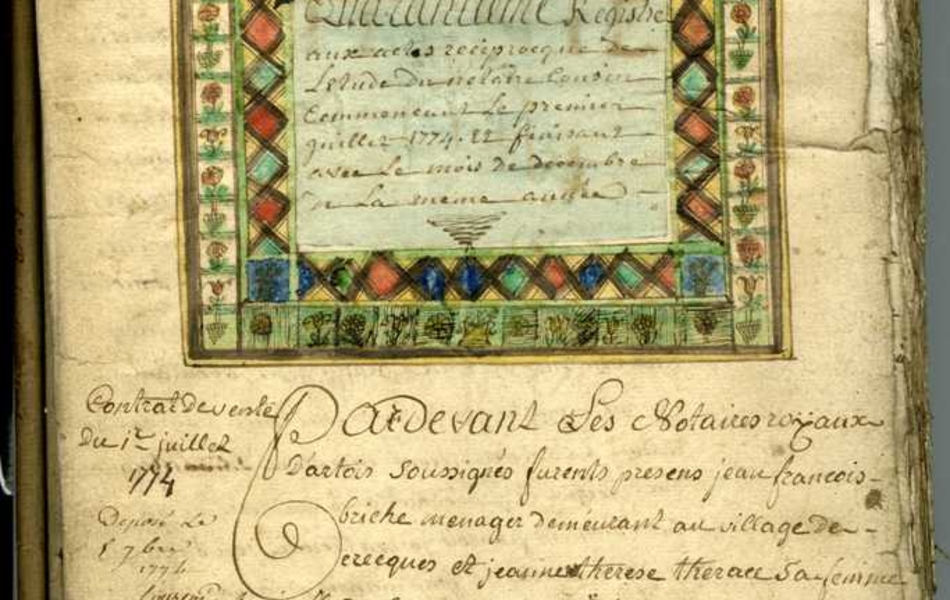 Quarantiame Registre
aux actes reciprocque de
Letude du notaire Cousin
Commencant Le premier
juillet 1774. Et finisant
avec Le mois de decembre
La meme année
Contrat de vente
Du 1er juillet
1774
Deposé Le
7bre
1774
Pardevant Les Notaires royaux
D'artois soussignés furents presens jean francois
briche menager demeurant au village de
erecques et jeanne therese therace Sa femme